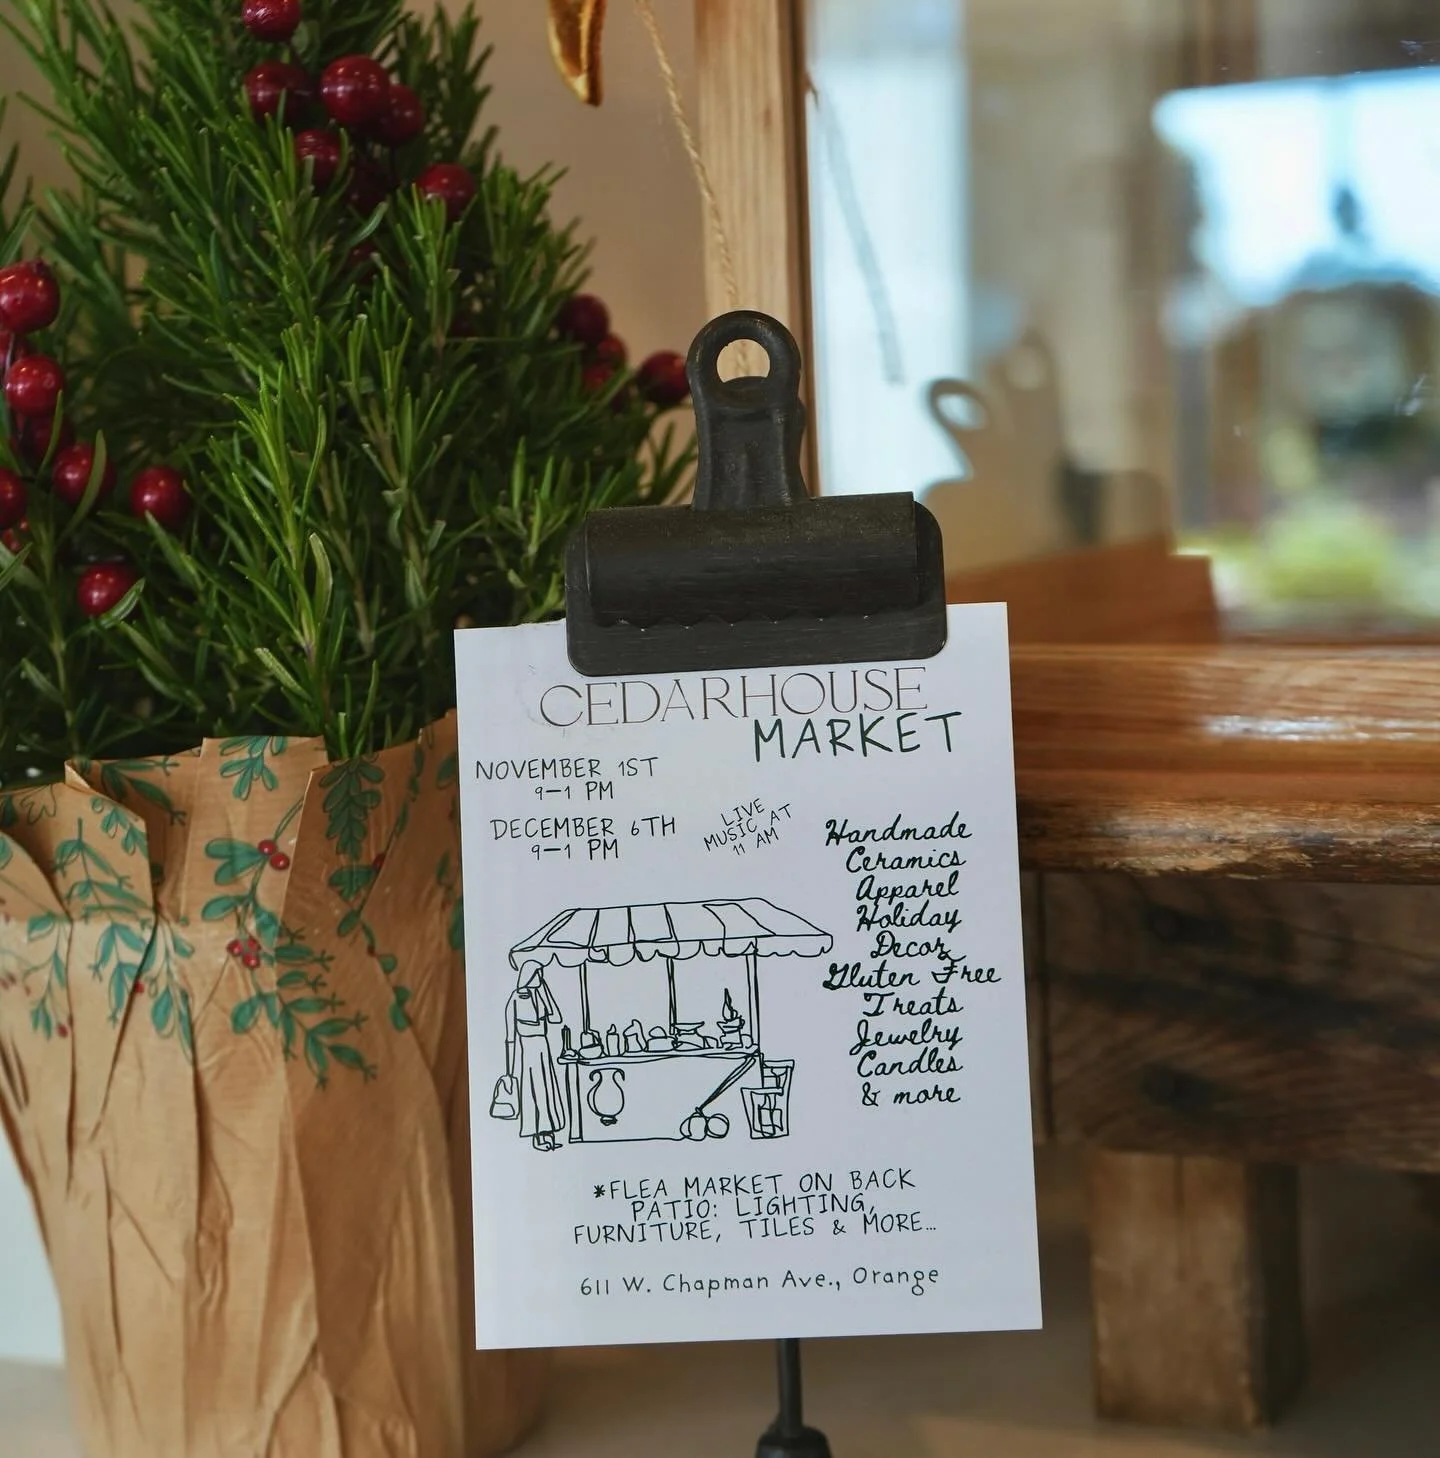 CEDARHOUSE
MARKET
NOVEMBER 1ST
9-1 PM
DECEMBER 6TH
9-1 PM
LIVE
MUSIC AT
11 AM
Handmade
Ceramics
Apparel
Holiday
Decor
Gluten Free
Treats
Jewelry
Candles
& more
*FLEA MARKET ON BACK
PATIO: LIGHTING,
FURNITURE, TILES & MORE...
611 W. Chapman Ave., Orange